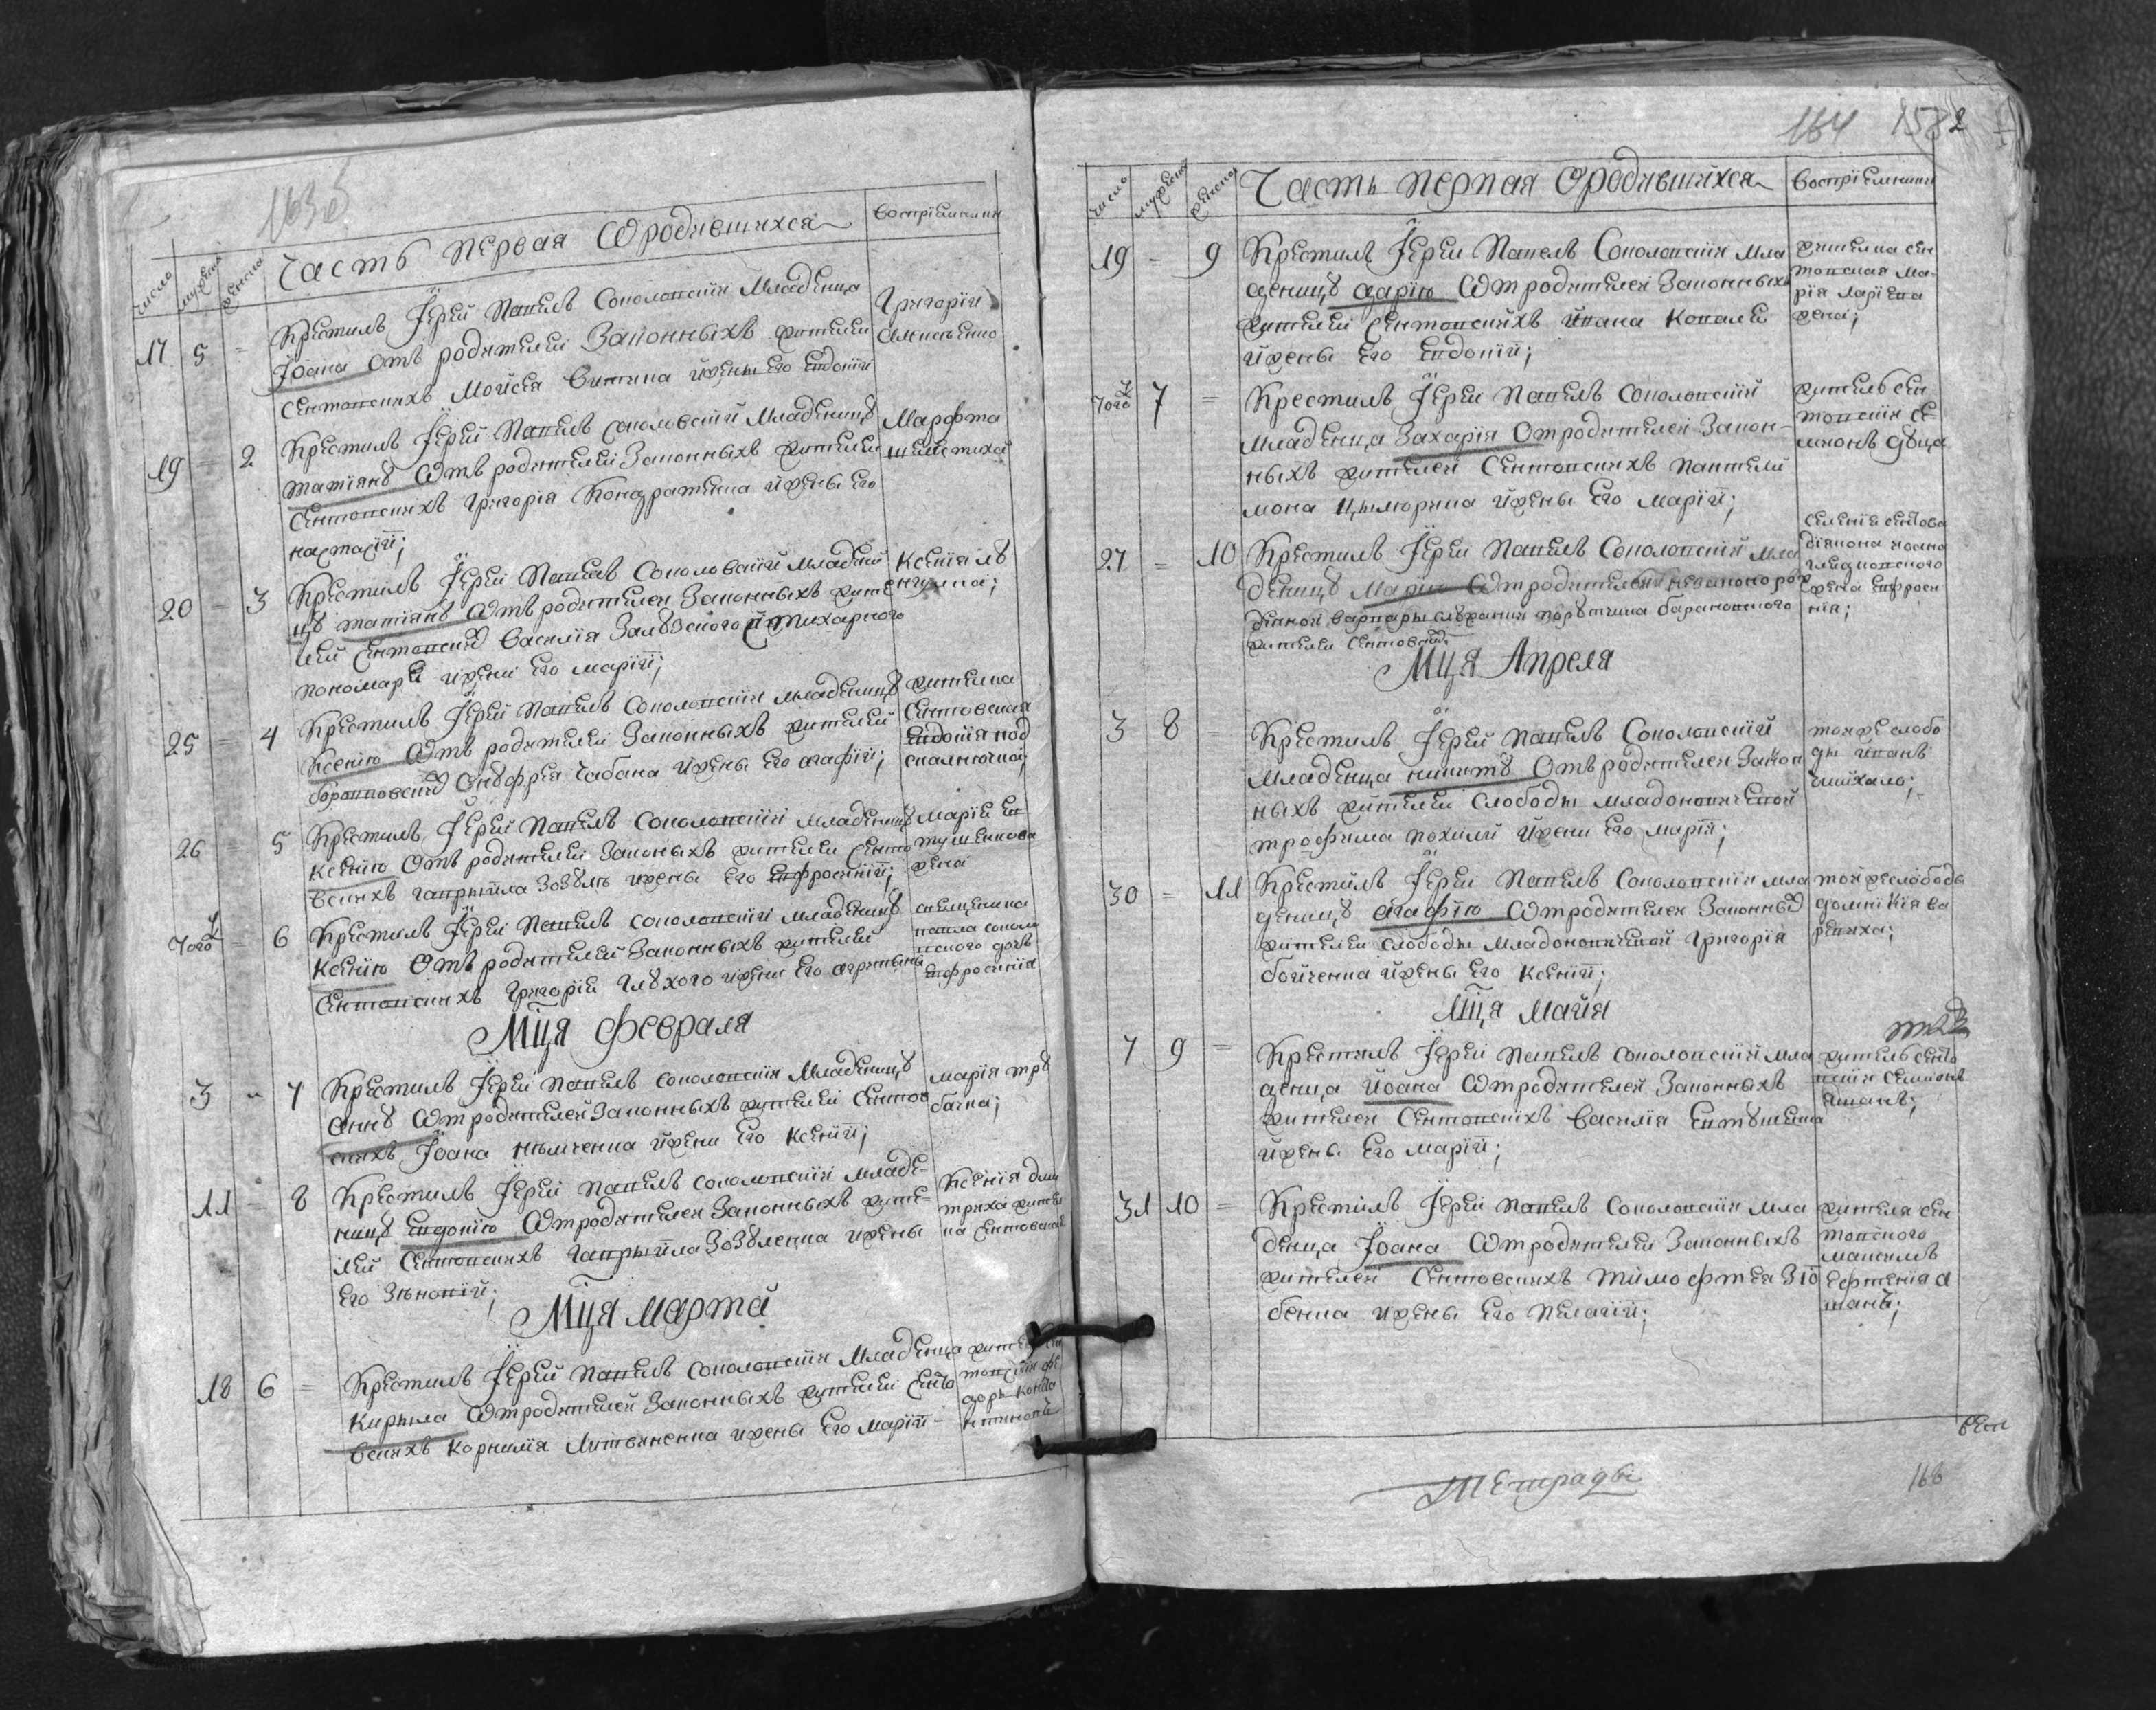 163
Часть первая О родившихся
Воспріемники
число мужеска женска
17 5 =
Крестилъ Іерей Павелъ Соколовскій Младенца
Іоана Отъ родителей Законныхъ жителей
Сентовскихъ Мойсея Битина и жены его Евдокіи
Григорій
Алексѣенко
19 = 2
Крестилъ Іерей Павелъ Соколовскій Младеницȣ
татіянȣ Отъ родителей Законныхъ жителей
Сентовскихъ Григорія Кондратенка и жены его
настасіи;
Марфта
20 = 3
Крестилъ Іерей Павелъ Соколовскій младени
цȣ татіянȣ Отъ родителей Законныхъ жите
лей Сентовскихъ Василія Залȣзского стихарного
пономаря и жени его маріи;
Ксенія лȣ
25 = 4
Крестилъ Іерей Павелъ Соколовскій младеницȣ
Ксенію Отъ родителей Законныхъ жителей
Онȣфрія Чабана и жены его агафіи;
жителка
Сентовская
Евдокія под
26 = 5
Крестилъ Іерей Павелъ Соколовскій младеницȣ
Ксенію Отъ родителей Законыхъ жителей Сенто
вскихъ гаврыила Зозȣлѣ и жены его Евфросиніи;
Маріи Ев
тушенкова
жена
Того = 6
Крестилъ Іерей Павелъ Соколовскій младеницȣ
Ксенію Отъ родителей Законныхъ жителей
Сентовскихъ Григорія Глȣхого и жени его агрыпины
священика
павла соколо
вского дочь
Евфросинія
Мца Февраля
3 = 7
Крестилъ Іерей Павелъ Соколовскій Младеницȣ
Аннȣ Отъ родителей Законныхъ жителей Сентов
скихъ Іоана нѣмченка и жени его Ксеніи;
Марія трȣ
бачка;
11 = 8
Крестилъ Іерей Павелъ соколовскій младе-
ницȣ Евдокію Отъ родителей Законныхъ жите-
лей Сентовскихъ гаврыила Зозȣленка и жены
его Зѣновіи;
Ксенія дми
триха жител
ка Сентовская
Мца Марта
18 6 =
Крестилъ Іерей Павелъ Соколовскій Младенца
Кирыла Отъ родителей Законныхъ жителей Сенто
вскихъ Корнилія Литвиненка и жены его Маріи-
164 158 2
Часть первая О родившийхся
Воспріемники
число мужеска женска
19 - 9
Крестилъ Іерей Павелъ Соколовскій Мла
деницȣ дарію Отъ родителей Законныхъ
жителей Сентовскихъ Ивана Ковалѣ
и жены Его Евдокіи;
жителка Сен
товская Ма-
рія
жена;
Того 7 =
Крестилъ Іерей Павелъ Соколовскій
младенца Захарія Отъ родителей Закон-
ныхъ жителей Сентовскихъ пантели
мона Цымирина и жены его маріи;
житель Сен
товскій Се-
миона дȣца
27 = 10
Крестилъ Іерей Павелъ Соколовскій мла
деницȣ Марію Отъ родителей незаконо рож
жителки Сентовской
селенія Сентова
діакона иоана
жена Евфроси
нія;
Мца Апреля
3 8 =
Крестилъ Іерей Павелъ Соколовскій
младенца никитȣ Отъ родителей Закон
ныхъ жителей слободы младоновичевой
трофима похилѣ и жени его маріи;
той же слобо
ды иванъ
30 = 11
Крестилъ Іерей Павелъ Соколовскій мла
деницȣ агафію Отъ родителей Законныхъ
жителей слободы младоновичевой григорія
бойченка и жены его Ксеніи;
той же слободы
домникія ва
Мца Майя
7 9 =
Крестилъ Іерей Павелъ Соколовскій мла
денца Иоана Отъ родителей Законныхъ
жителей Сентовскихъ василія Евтȣшенка
и жены его маріи;
житель Сенто
вскій Симионъ
31 10 =
Крестилъ Іерей Павелъ Соколовскій мла
денца Іоана Отъ родителей Законныхъ
жителей Сентовскихъ тимофтея Зю
бенка и жены его пелагіи;
жителя Сен
товского
Тетради
166